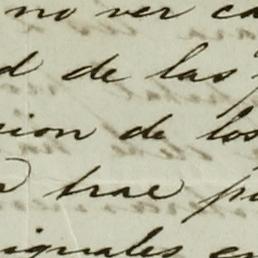 no ver ca
d de las
sion de los
trae p
iguales en